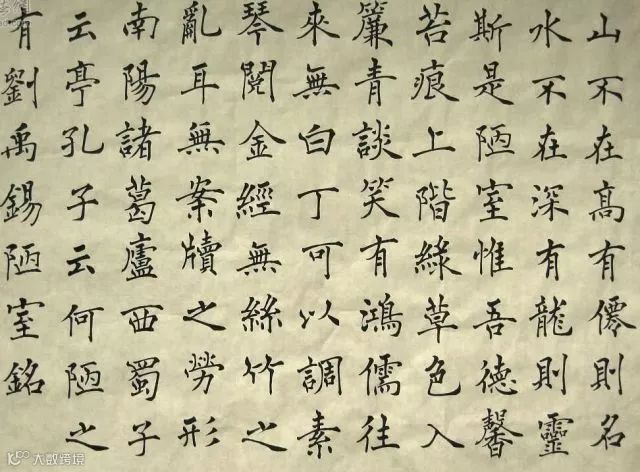 山不在高有僊則名
水不在深有龍則靈
斯是陋室惟吾德馨
苔痕上階綠草色入
簾青談笑有鴻儒往
來無白丁可以調素
琴閱金經無絲竹之
亂耳無案牘之勞形
南陽諸葛廬西蜀子
云亭孔子云何陋之
有劉禹錫陋室銘
大数跨境